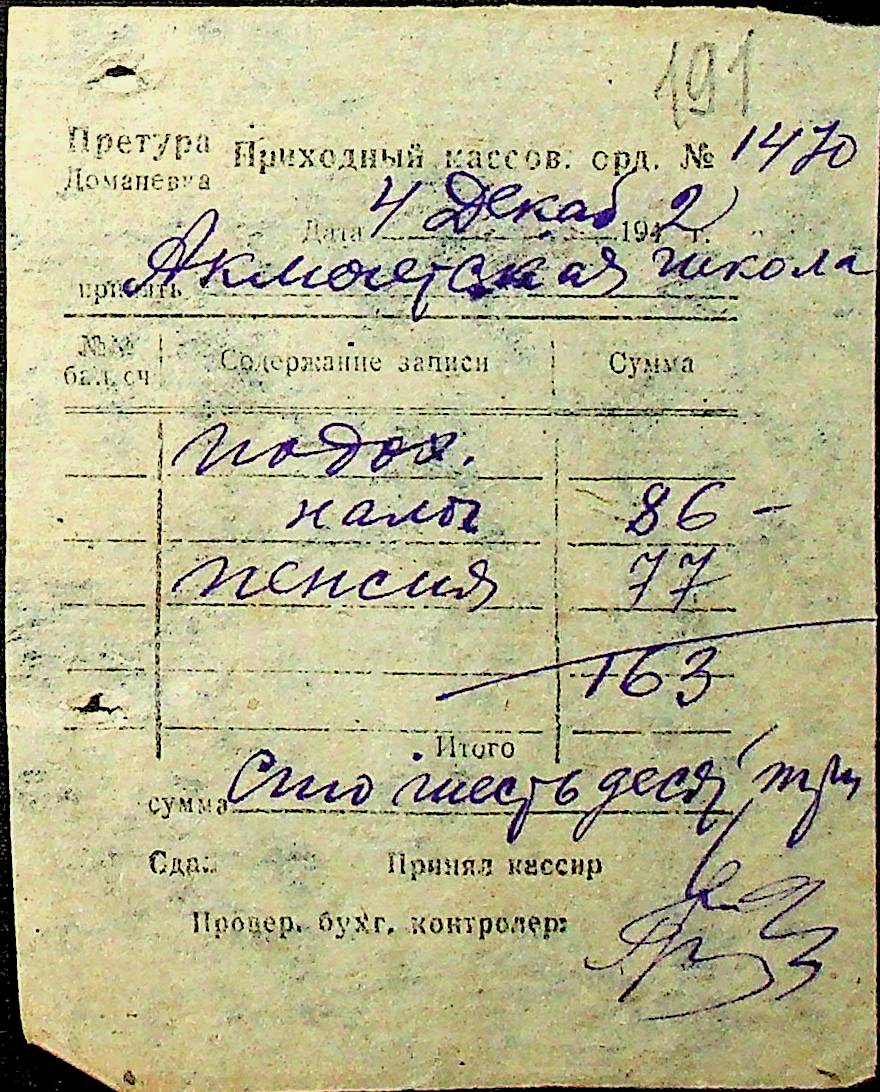 191
Претура Приходный кассов. орд. № 1470
Доманевка
Дата 4 Декаб 1942 г.
принять Акмечетская школа
№№ бал. сч Содержание записи Сумма
подох.
налог 86 -
пенсия 77
163
Итого
сумма Сто шестьдесят три
Сдал Принял кассир
Провер. бухг. контролер: